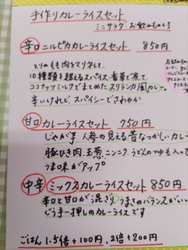 手作りカレーライスセット
ミニサラダ お飲み物付
辛口 ニルピカカレーライスセット 850円
とりのももをマリネして、
10種類を超えるスパイス、香草に漬て
ココナッツミルクでまとめた スリランカ風カレー
辛いけれど、スパイシーでさわやか
甘口 カレーライスセット 750円
じゃが芋 人参の見える昔なつかしいカレー
豚ひき肉、玉葱、ニンニク、うどんのつゆも入って
うま味がアップ
中辛 ミックスカレーライスセット 850円
辛口と甘口が混ざり うま味のバランスがいい
どうまー押しのカレーライスです
ごはん 1.5倍+100円、2倍+200円